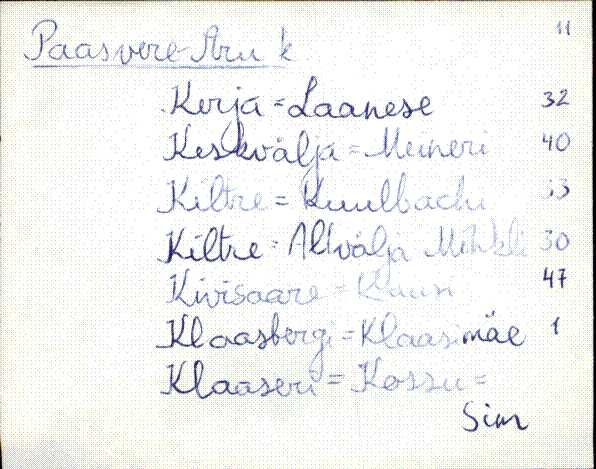 11
Paasvere-Aru k
Kerja = Laanese 32
Keskvälja = Meineri 40
Kiltre = Kuulbachi 33
Kiltre = Altvälja Mihkli 30
Kivisaare = Klausi 47
Klaasbergi = Klaasimäe 1
Klaaseri = Kossu =
Sim